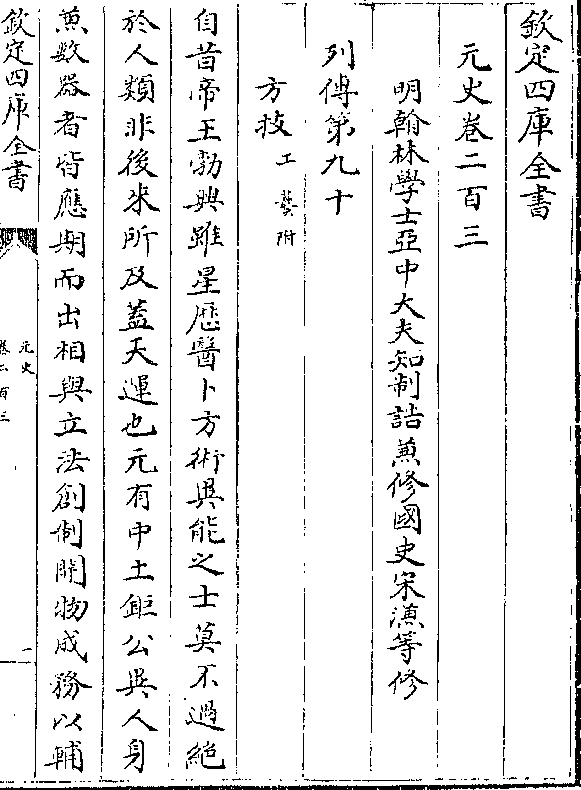 欽定四庫全書
元史卷二百三
明翰林學士亞中大夫知制誥兼修國史宋濂等修
列傳第九十
方技工藝附
自昔帝王勃興雖星厯醫卜方術異能之士莫不過絶
於人類非後来所及蓋天運也元有中土鉅公異人身
兼數器者皆應期而出相與立法創制開物成務以輔
欽定四庫全書
元史
卷二百三
一